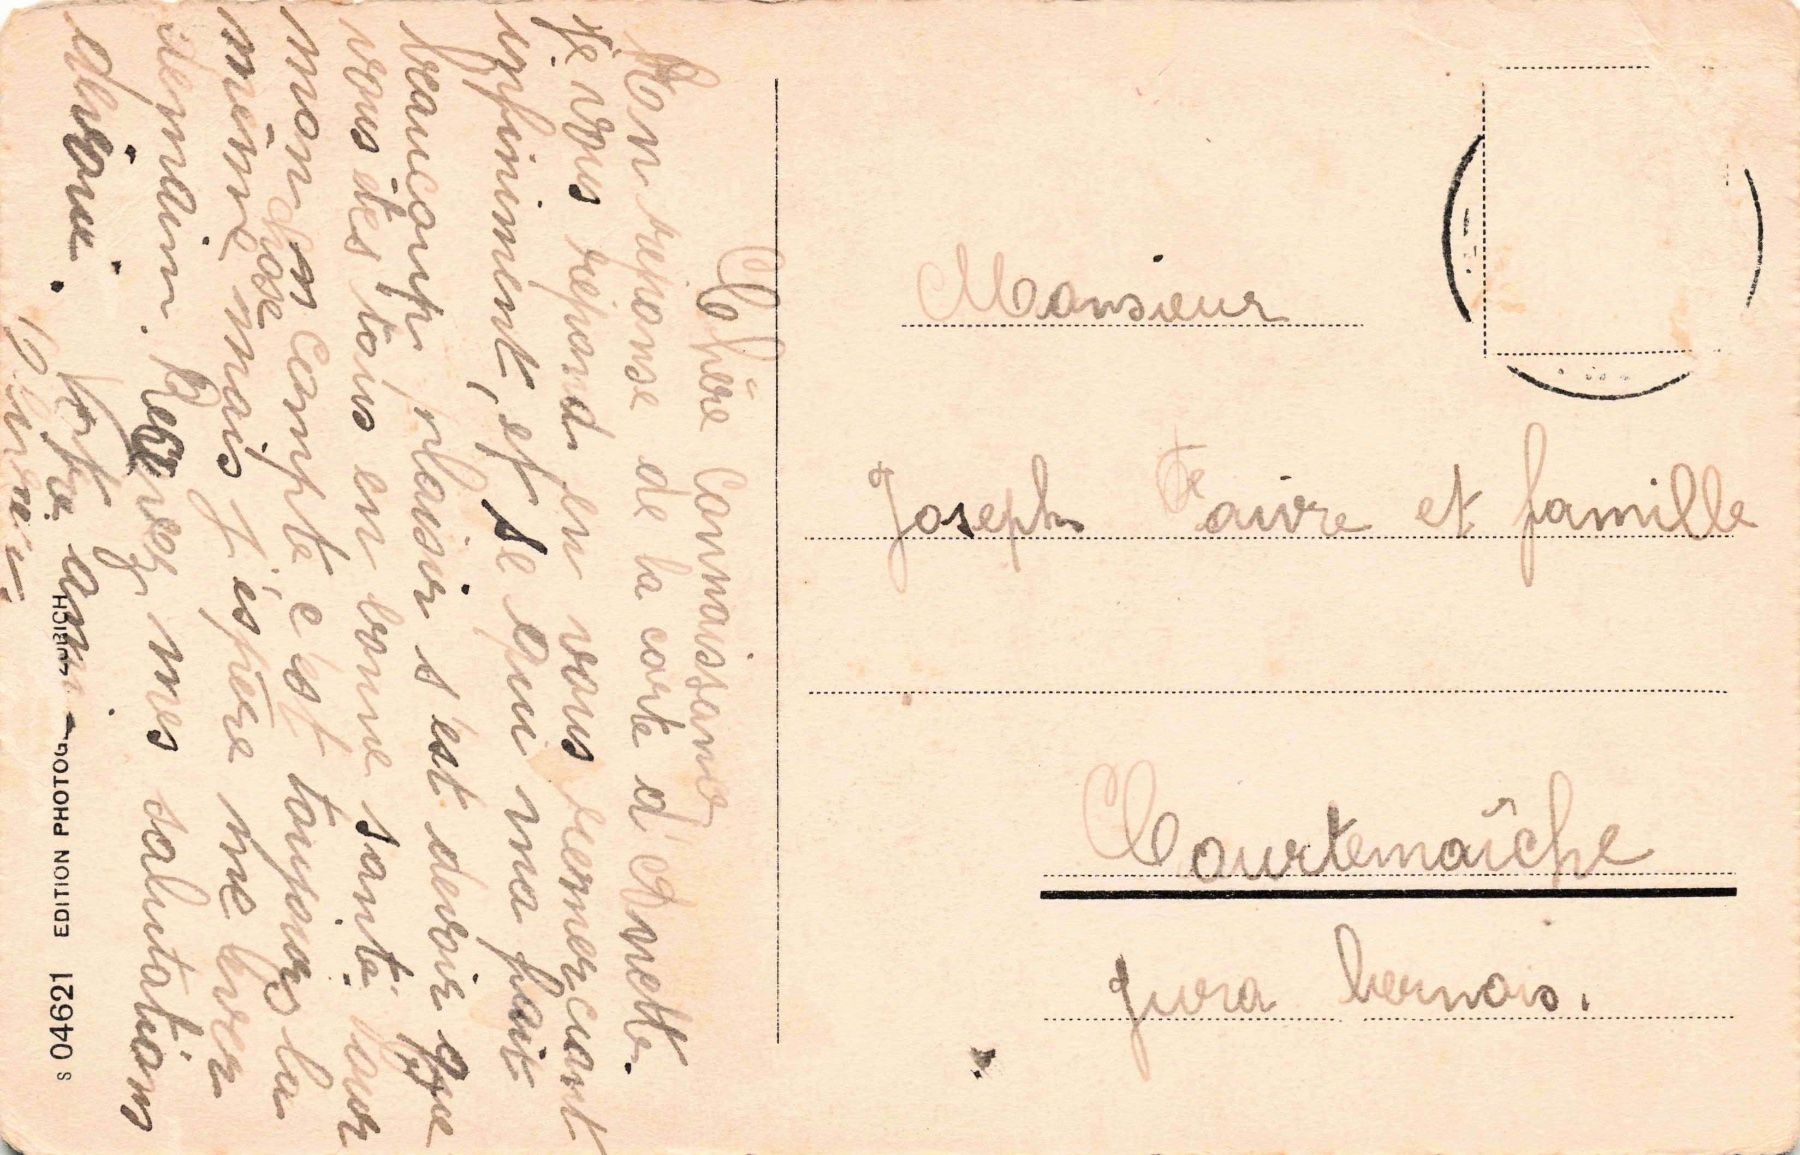 Chère Connaissance
En réponse de la carte d'Anette.
je vous répond en vous remerciant
infiniment, et se qui ma fait
beaucoup plaisir s'est devoir que
vous êtes tous en bonne santé pour
mon compte c'est toujours la
même chose mais j'éspère me lever
demain. Recevez mes salutations
Votre ami
Monsieur
Joseph Faivre et famille
Courtemaîche
Jura bernois.
S 04621 EDITION PHOTOG ZÜRICH